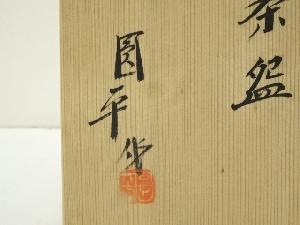 茶盌
圓平作